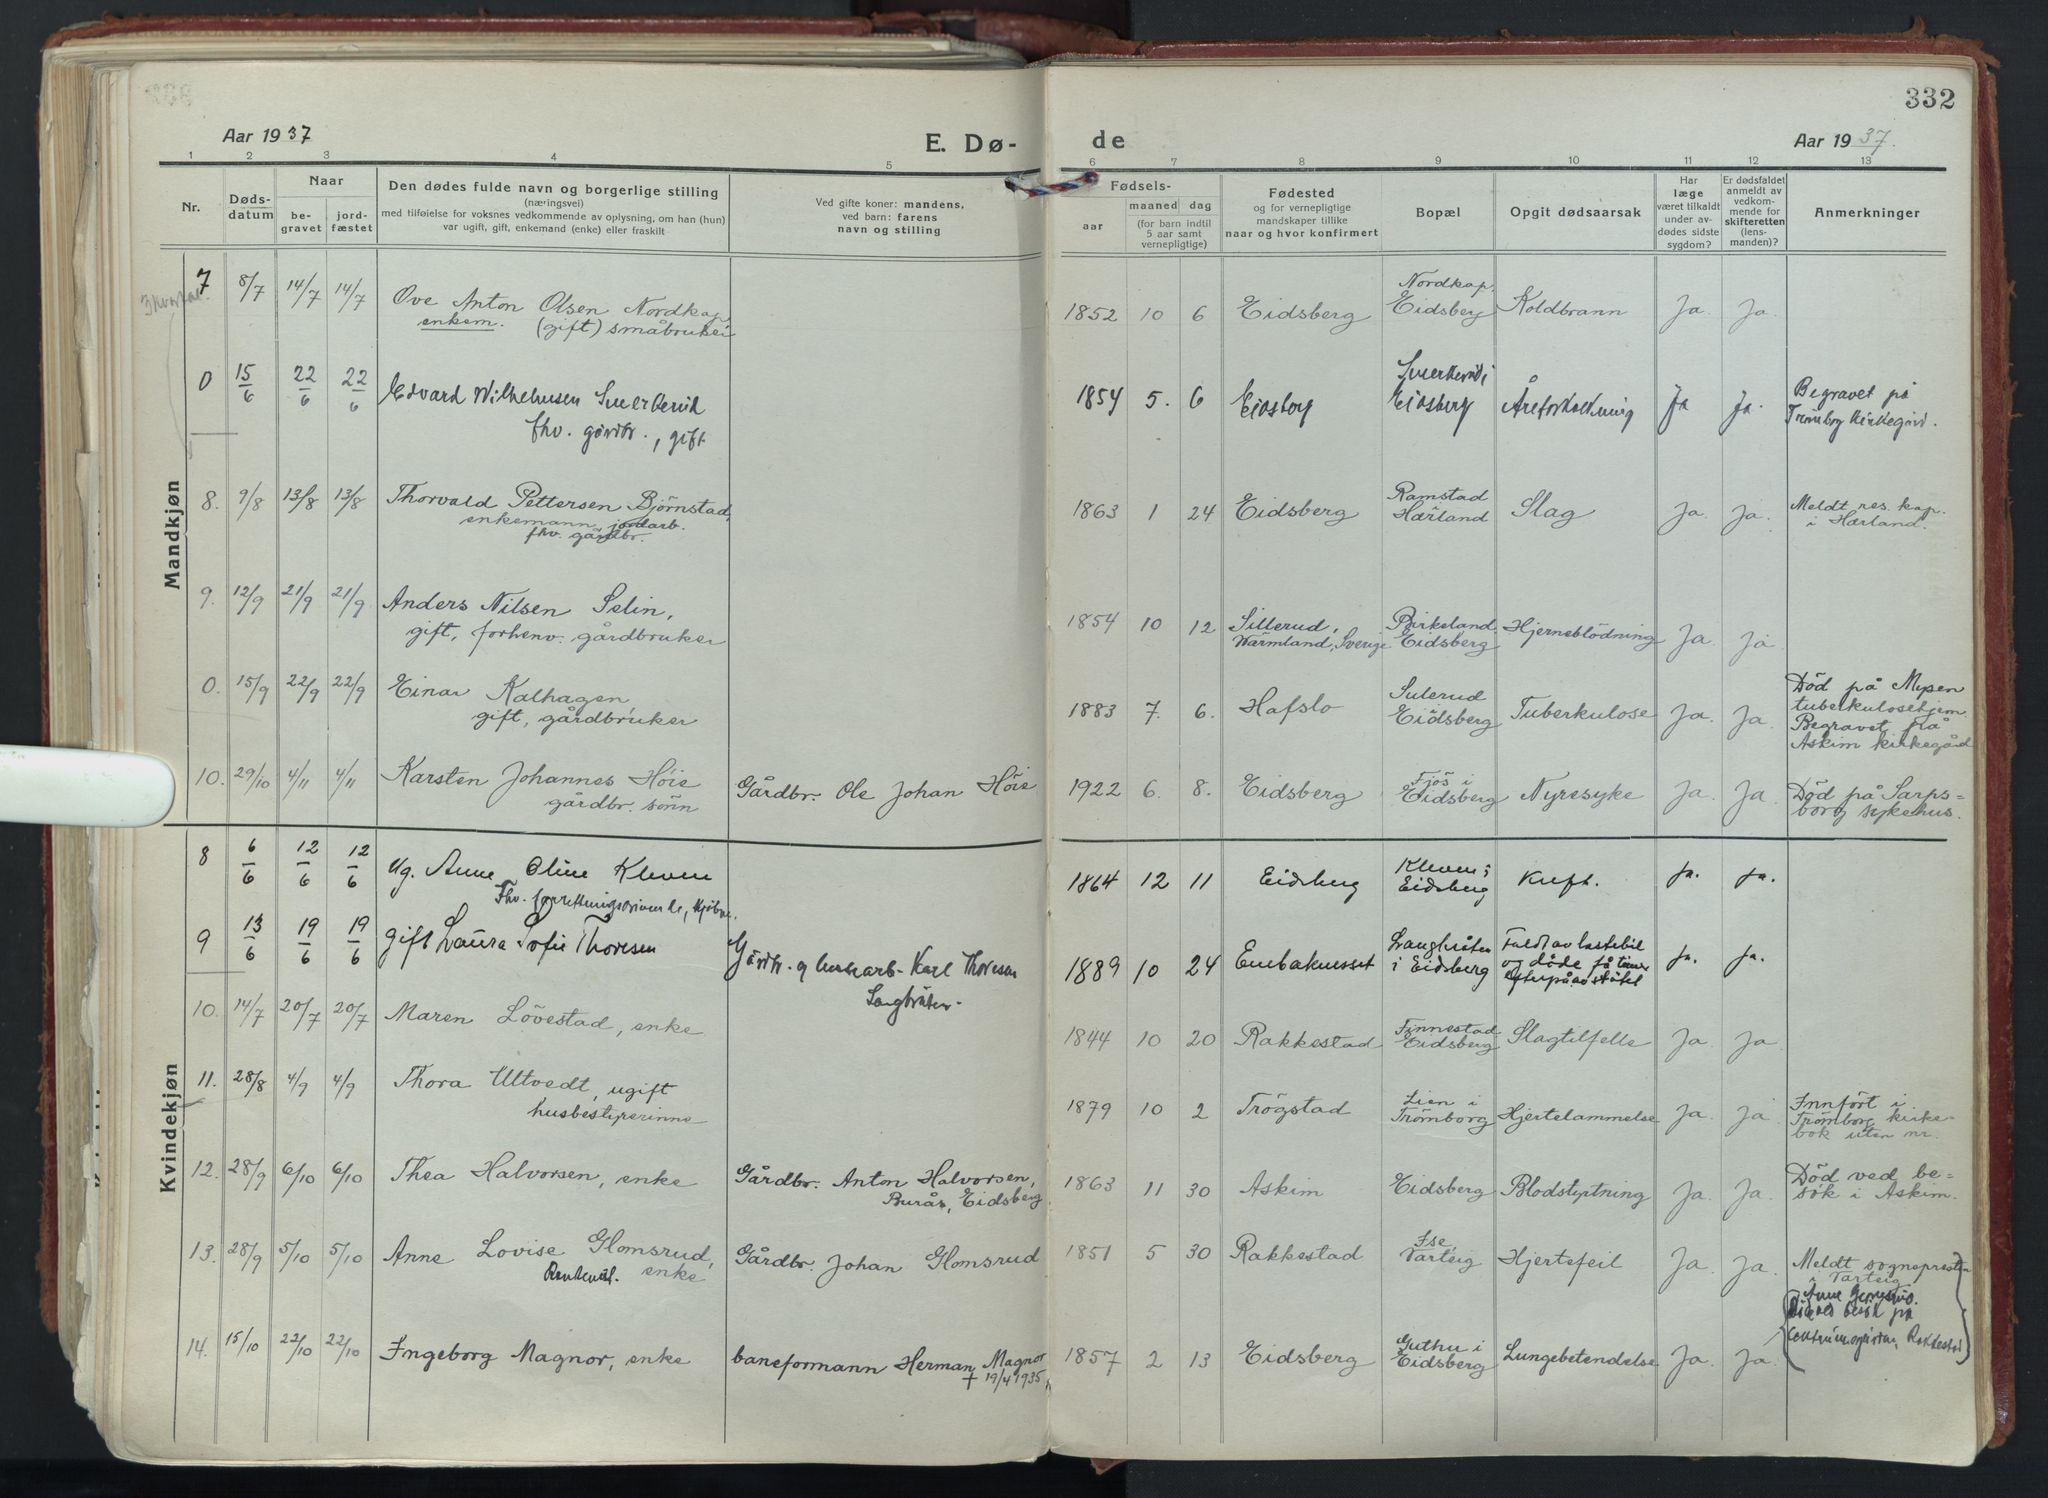 332
Aar 1937
E. Dø-
de
Aar 1937.
1 2 3 4 5 6 7 8 9 10 11 12 13
Nr.
Døds-
datum
Naar
be-
gravet
jord-
fæstet
Den dødes fulde navn og borgerlige stilling
(næringsvei)
med tilføielse for voksnes vedkommende av oplysning, om han (hun)
var ugift, gift, enkemand (enke) eller fraskilt
Ved gifte koner: mandens,
ved barn: farens
navn og stilling
Fødsels-
aar
maaned dag
(for barn indtil
5 aar samt
vernepligtige)
Fødested
og for vernepligtige
mandskaper tillike
naar og hvor konfirmert
Bopæl
Opgit dødsaarsak
Har
læge
været tilkaldt
under av-
dødes sidste
sygdom?
Er dødsfaldet
anmeldt av
vedkom-
mende for
skifteretten
(lens-
manden)?
Anmerkninger
Mandkjøn
7 8/7 14/7 14/7 Ove Anton Olsen Nordkap
enkem. (gift) småbruker
1852 10 6 Eidsberg Nordkap.
Eidsberg Koldbrann Ja. Ja.
0 15/6 22/6 22/6 Edvard Wilhelmsen
fhv. gårdbr., gift
1854 5. 6 Eidsberg
Eidsberg Åreforkalkning Ja Ja. Begravet på
Trømborg kirkegård.
8. 9/8 13/8 13/8 Thorvald Pettersen Bjørnstad,
enkemann, jordarb.
fhv. gårdbr.
1863 1 24 Eidsberg Ramstad
Hærland Slag Ja. Ja. Meldt res. kap.
i Hærland.
9. 12/9 21/9 21/9 Anders Nilsen Selin,
gift, forhenv. gårdbruker
1854 10 12 Sillerud,
Wärmland, Sverige Birkeland,
Eidsberg Hjerneblödning Ja. Ja.
0. 15/9 22/9 22/9 Einar Kalhagen
gift, gårdbruker
1883 7. 6. Hafslo Sulerud
Eidsberg Tuberkulose Ja. Ja. Död på Mysen
tuberkulosehjem.
Begravet på
Askim kirkegård
10. 29/10 4/11 4/11 Karsten Johannes Höie
gårdbr. sönn
Gårdbr. Ole Johan Höie
1922 6. 8. Eidsberg Fjös i
Eidsberg Nyresyke Ja. Ja. Död på Sarps=
borg sykehus.
Kvindekjøn
8 6/6 12/6 12/6 Ug. Anne Oline Kleven
Fhv. forretningsdrivende,
1864 12 11 Eidsberg Kleven i
Eidsberg Kreft. Ja. Ja.
9 13/6 19/6 19/6 gift Laura Sofie Thoresen
Gårdbr. og Karl Thoresen
Langbråten.
1889 10 24 Enebaknesset Langbråten
i Eidsberg Faldt av lastebil
og døde få timer
efterpå av støtet Ja. Ja.
10. 14/7 20/7 20/7 Maren Lövestad, enke
1844 10 20 Rakkestad Finnestad
Eidsberg Slagtilfelle Ja. Ja
11. 28/8 4/9 4/9 Thora Ultvedt, ugift
husbestyrerinne
1879 10 2 Trögstad Lien i
Trömborg Hjertelammelse Ja. Ja Innfört i
Trömborg kirke-
bok uten nr.
12. 28/9 6/10 6/10 Thea Halvorsen, enke
Gårdbr. Anton Halvorsen,
Burås, Eidsberg
1863 11 30 Askim Eidsberg Blodstyrtning Ja. Ja. Död ved be=
sök i Askim.
13. 28/9 5/10 5/10 Anne Lovise Glomsrud,
enke
Gårdbr. Johan Glomsrud
1851 5 30 Rakkestad Ise
Varteig Hjertefeil Ja. Ja. Meldt sognepresten
i Varteig
Anne
besök på
Rakkestad
14. 15/10 22/10 22/10 Ingeborg Magnor, enke
baneformann Herman Magnor
† 19/4 1935
1857 2 13 Eidsberg Guthu i
Eidsberg Lungebetendelse Ja. Ja.